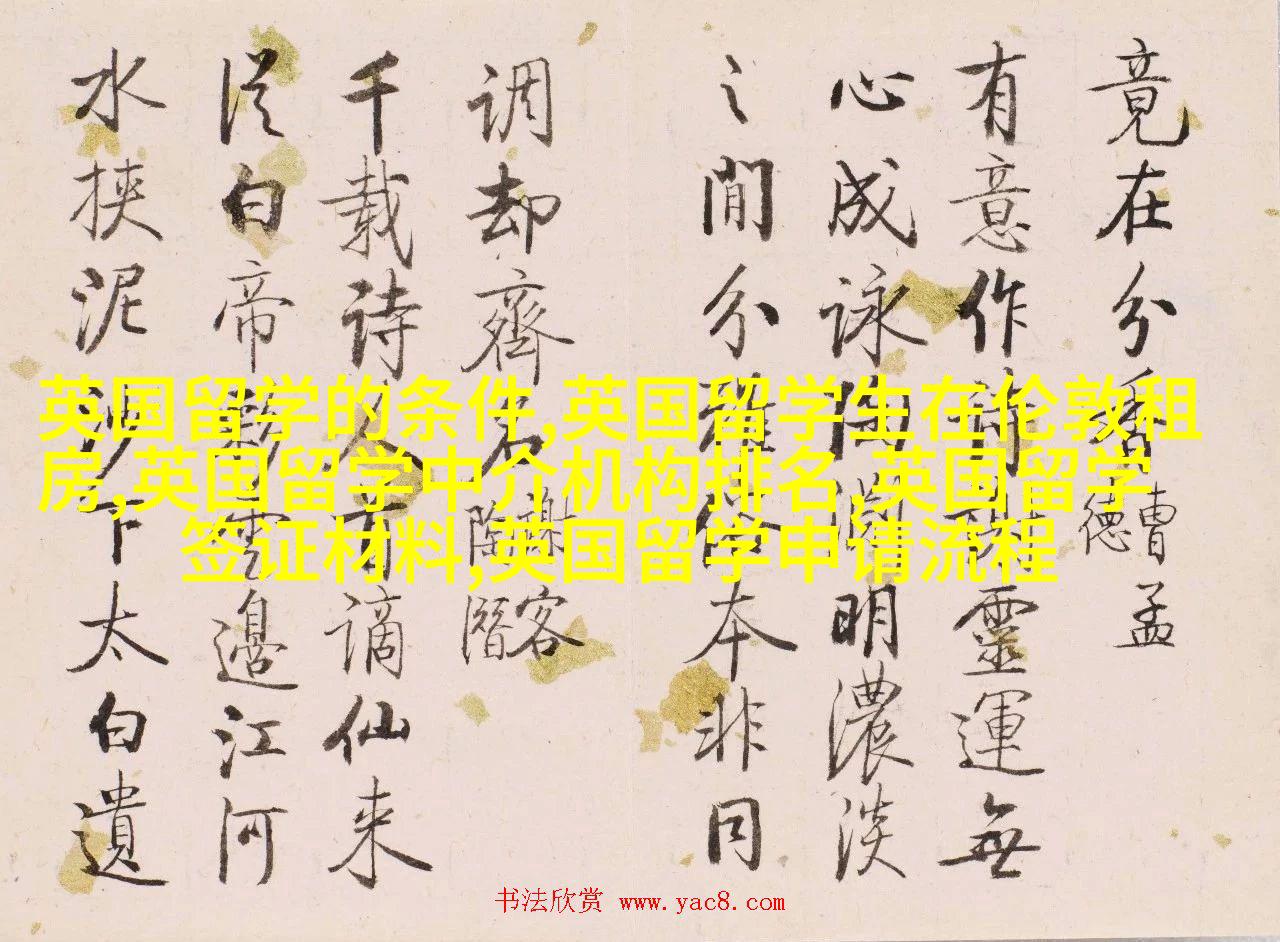 竟在分香曹孟德
有意作詩謝靈運無
心成詠陶淵明濃淡
之間分雅俗本非同
調却齊名謝客陶潛
千載詩人有謫仙来
從白帝彩雲邊江河
水挾泥沙下太白遺
英国留学的条件,英国留学生在伦敦租
房,英国留学中介机构排名,英国留学
签证材料,英国留学申请流程
书法欣赏 www.yac8.com